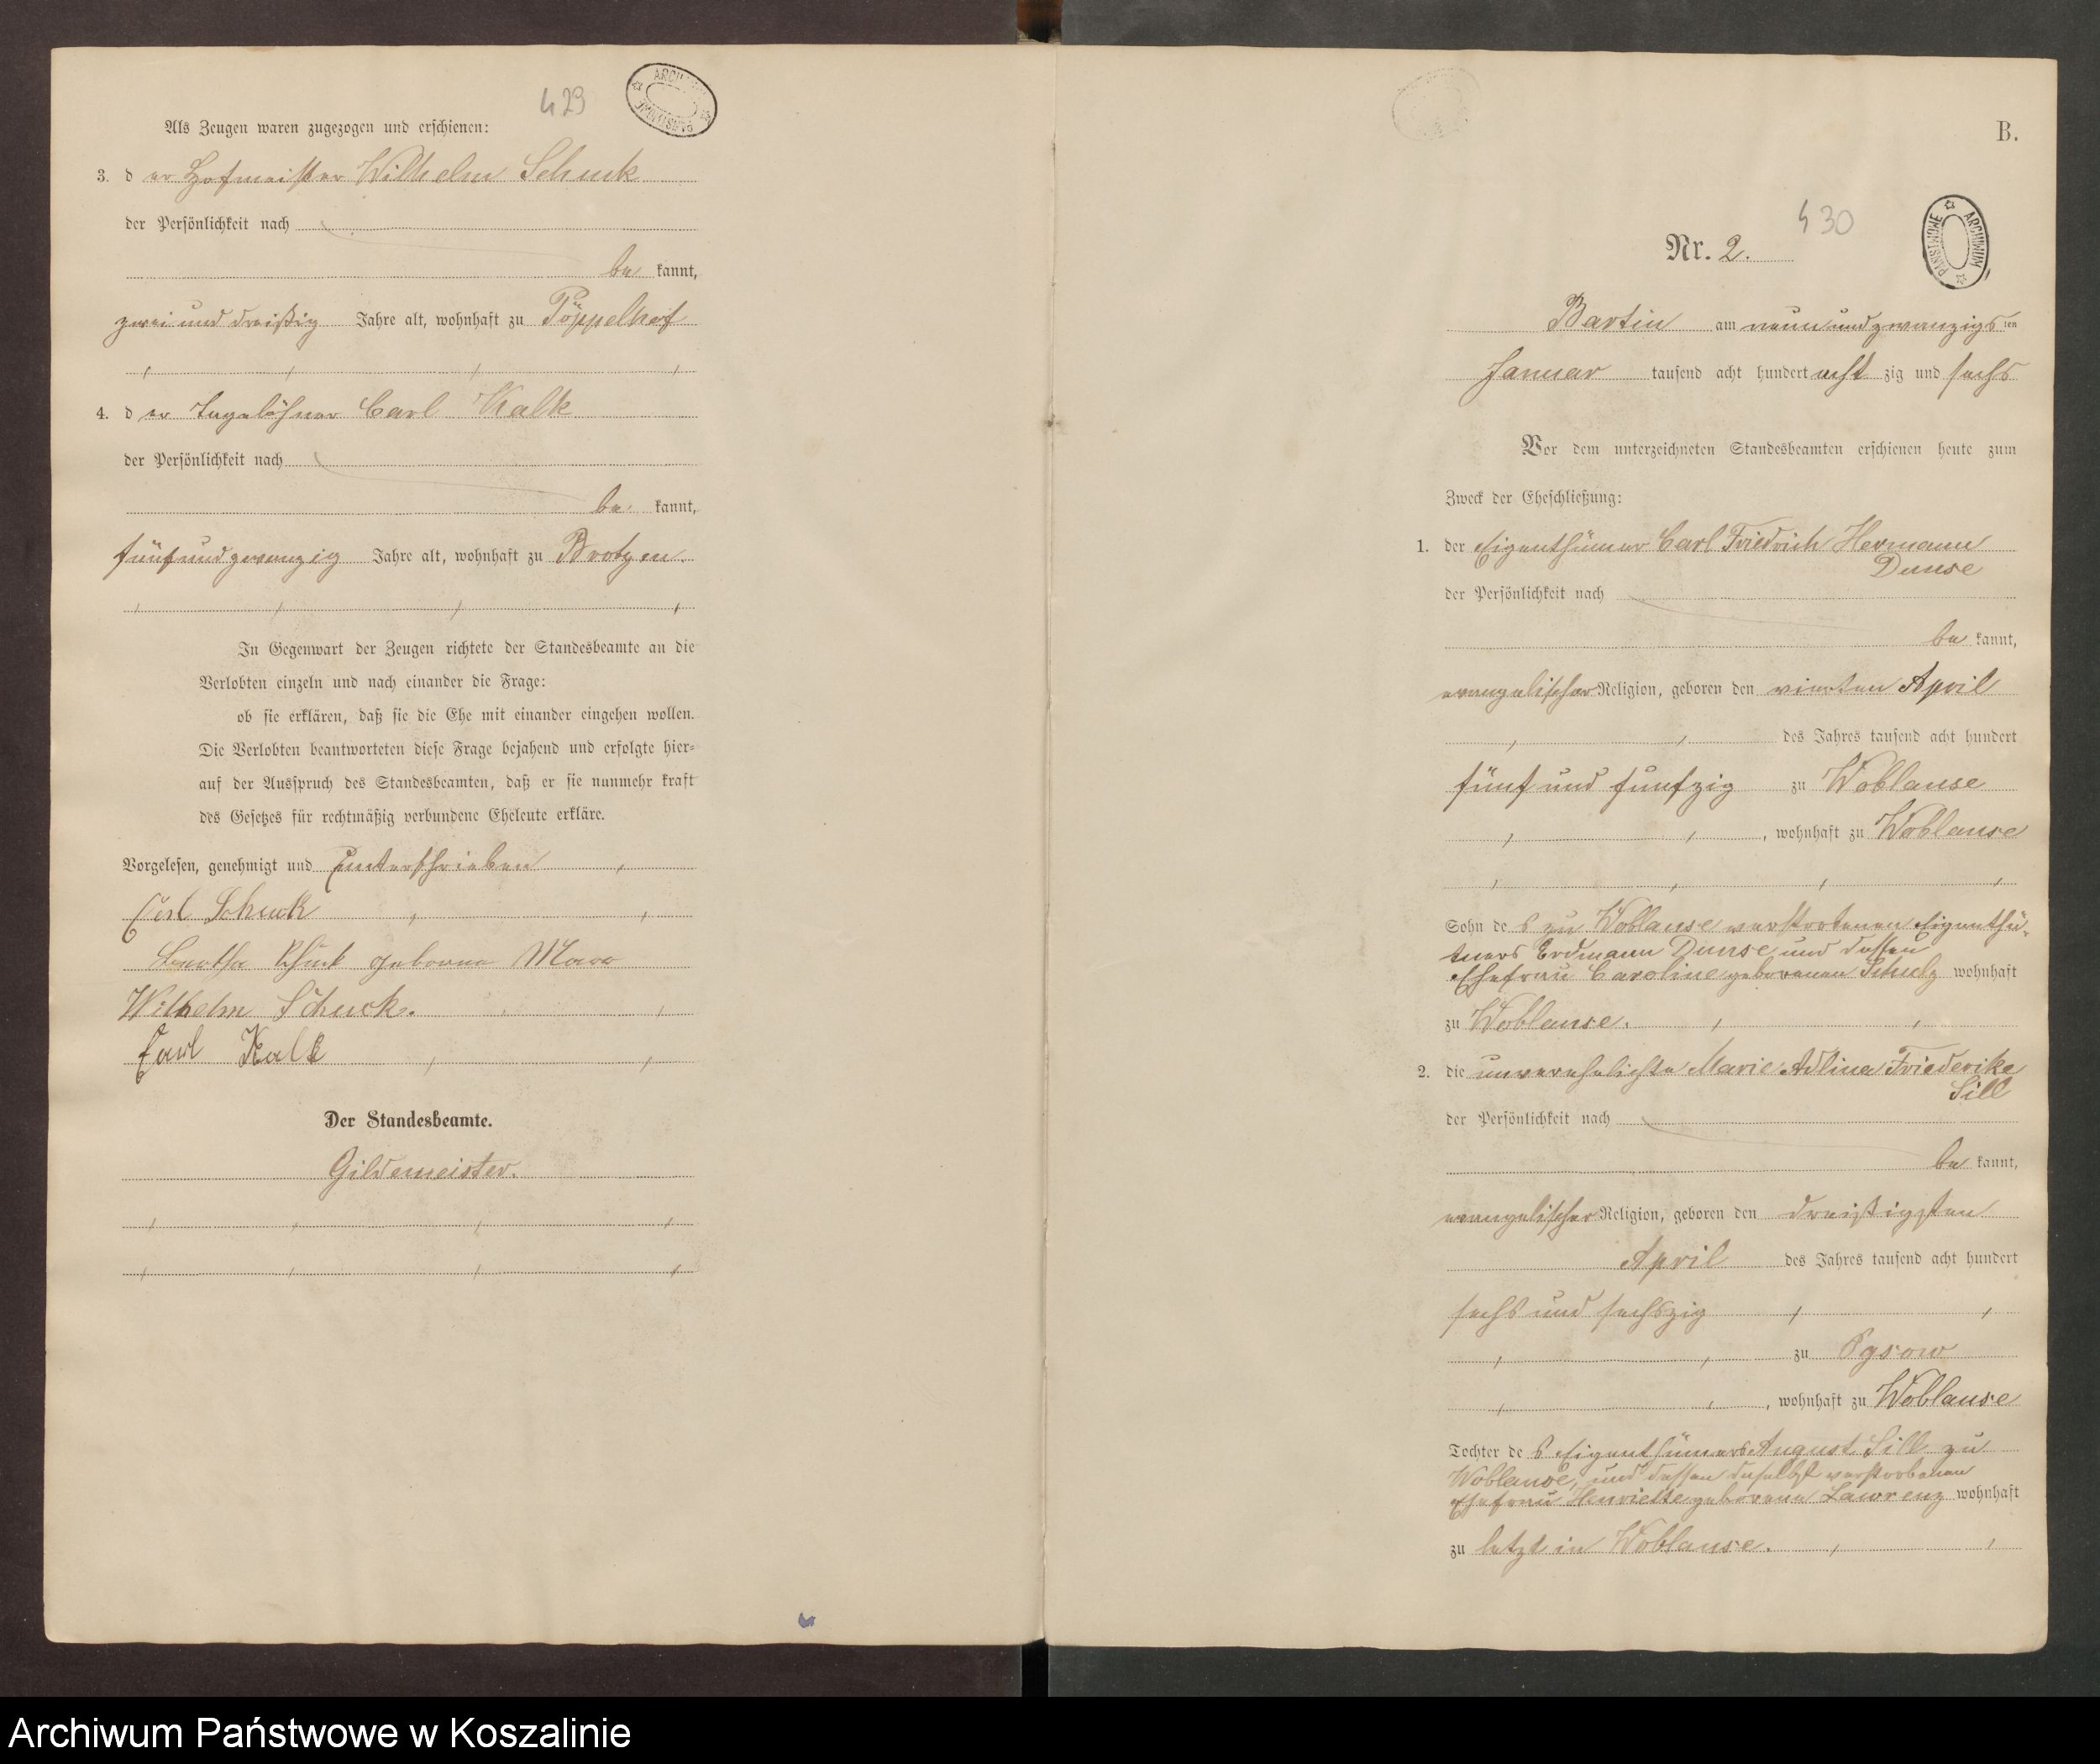 429
ARCHIWUM PAŃSTWOWE
Als Zeugen waren zugezogen und erschienen:
3. d er Hofmeister Wilhelm Schuk
der Persönlichkeit nach
be kannt,
zwei und dreißig Jahre alt, wohnhaft zu Pöppelhof
4. d er Tagelöhner Carl Kalk
der Persönlichkeit nach
be kannt,
fünf und zwanzig Jahre alt, wohnhaft zu Brotzen.
In Gegenwart der Zeugen richtete der Standesbeamte an die
Verlobten einzeln und nach einander die Frage:
ob sie erklären, daß sie die Ehe mit einander eingehen wollen.
Die Verlobten beantworteten diese Frage bejahend und erfolgte hier-
auf der Ausspruch des Standesbeamten, daß er sie nunmehr kraft
des Gesetzes für rechtmäßig verbundene Eheleute erkläre.
Vorgelesen, genehmigt und unterschrieben
Carl Schuck
geborne
Wilhelm Schuck.
Carl Kalk
Der Standesbeamte.
Gildemeister.
B.
430
Nr. 2.
PAŃSTWOWE ARCHIWUM
Bartin am neun und zwanzigs ten
Januar tausend acht hundert acht zig und sechs
Vor dem unterzeichneten Standesbeamten erschienen heute zum
Zweck der Eheschließung:
1. der Eigenthümer Carl Friedrich Hermann
Dunse
der Persönlichkeit nach
be kannt,
evangelischer Religion, geboren den vierten April
des Jahres tausend acht hundert
fünf und funfzig zu Woblanse
, wohnhaft zu Woblanse
Sohn de s zu Woblanse verstorbenen Eigenthü-
mers Erdmann Dunse und dessen
Ehefrau Caroline geborenen Schulz wohnhaft
zu Woblanse.
2. die unverehelichte Marie Adline Friederike
Sill
der Persönlichkeit nach
be kannt,
evangelischer Religion, geboren den dreißigsten
April des Jahres tausend acht hundert
sechs und sechszig
zu
, wohnhaft zu Woblanse
Tochter de s Eigenthümers August Sill zu
Woblanse, und dessen daselbst verstorbenen
Ehefrau Henriette geborene Lawrenz wohnhaft
zu letzt in Woblanse.
Archiwum Państwowe w Koszalinie